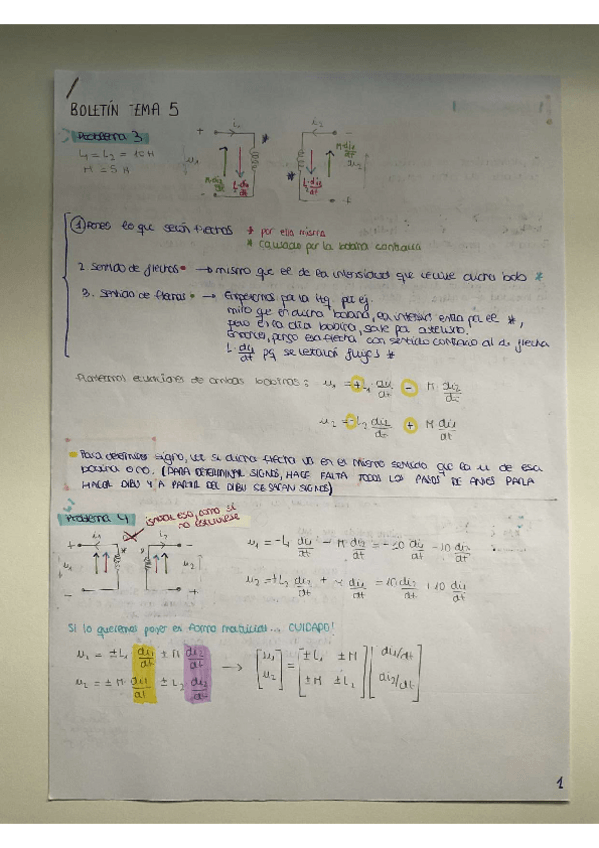 BOLETÍN TEMA 5
Problema 3
i₁ i₂
+ * −
L₁ = L₂ = 15 H
M = 5 H
u₁ M di₂/dt L₁ di₁/dt * L₂ di₂/dt M di₁/dt u₂
− +
① Pones lo que serán flechas * por ella misma
* causado por la bobina contraria
2. sentido de flechas → mismo que el de la intensidad que recorre dicho lado *
3. sentido de flechas → Empezamos por la izq. por ej.
miro que en dicha bobina, la intensidad entra por el *,
pero en la otra bobina, sale por asterisco.
Entonces, pongo esa flecha con sentido contrario al de flecha
L · di₁/dt pq se restarían flujos *
Planteamos ecuaciones de ambas bobinas: u₁ = + L₁ di₁/dt − M · di₂/dt
u₂ = − L₂ di₂/dt + M di₁/dt
Para determinar signo, ver si dicha flecha va en el mismo sentido que la u de esa
bobina o no. (PARA DETERMINAR SIGNOS, HACE FALTA TODOS LOS PASOS DE ANTES PARA
HACER DIBU Y A PARTIR DEL DIBU SE SACAN SIGNOS)
Problema 4
ignorar eso, como si
no estuviese
+ i₁ i₂ −
u₁ u₂
− +
u₁ = −L₁ di₁/dt − M di₂/dt = −10 di₁/dt − 10 di₂/dt
u₂ = +L₂ di₂/dt + M di₁/dt = 10 di₂/dt + 10 di₁/dt
Si lo queremos poner en forma matricial... CUIDADO!
u₁ = ± L₁ di₁/dt ± M di₂/dt → [u₁ u₂] = [± L₁ ± M ± M ± L₂] [di₁/dt di₂/dt]
u₂ = ± M · di₁/dt ± L₂ · di₂/dt
1